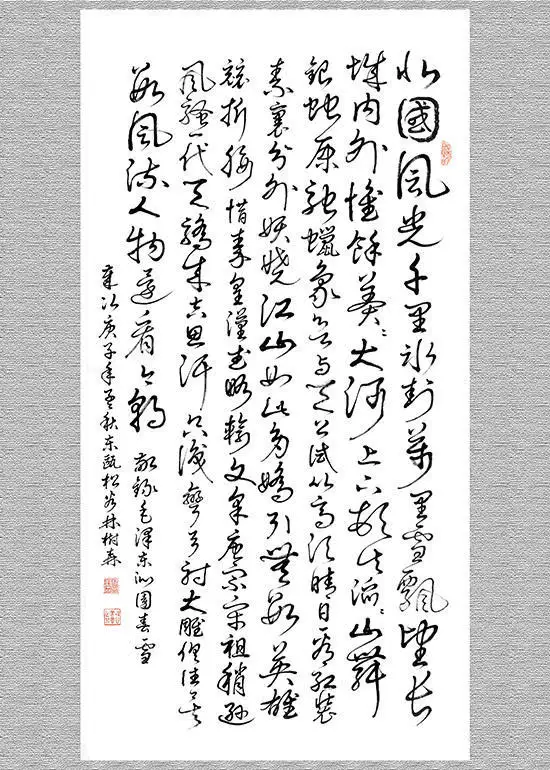 北國風光千里冰封萬里雪飄望長
城内外惟餘莽々大河上下頓失滔々山舞
銀蛇原馳蠟象欲與天公試比高須晴日看紅裝
素裹分外妖嬈江山如此多嬌引無數英雄
競折腰惜秦皇漢武略輸文采唐宗宋祖稍遜
風騷一代天驕成吉思汗只識彎弓射大雕俱往矣
數風流人物還看今朝 敬錄毛澤東沁園春雪
歲次庚子年孟秋東甌松谷林樹森